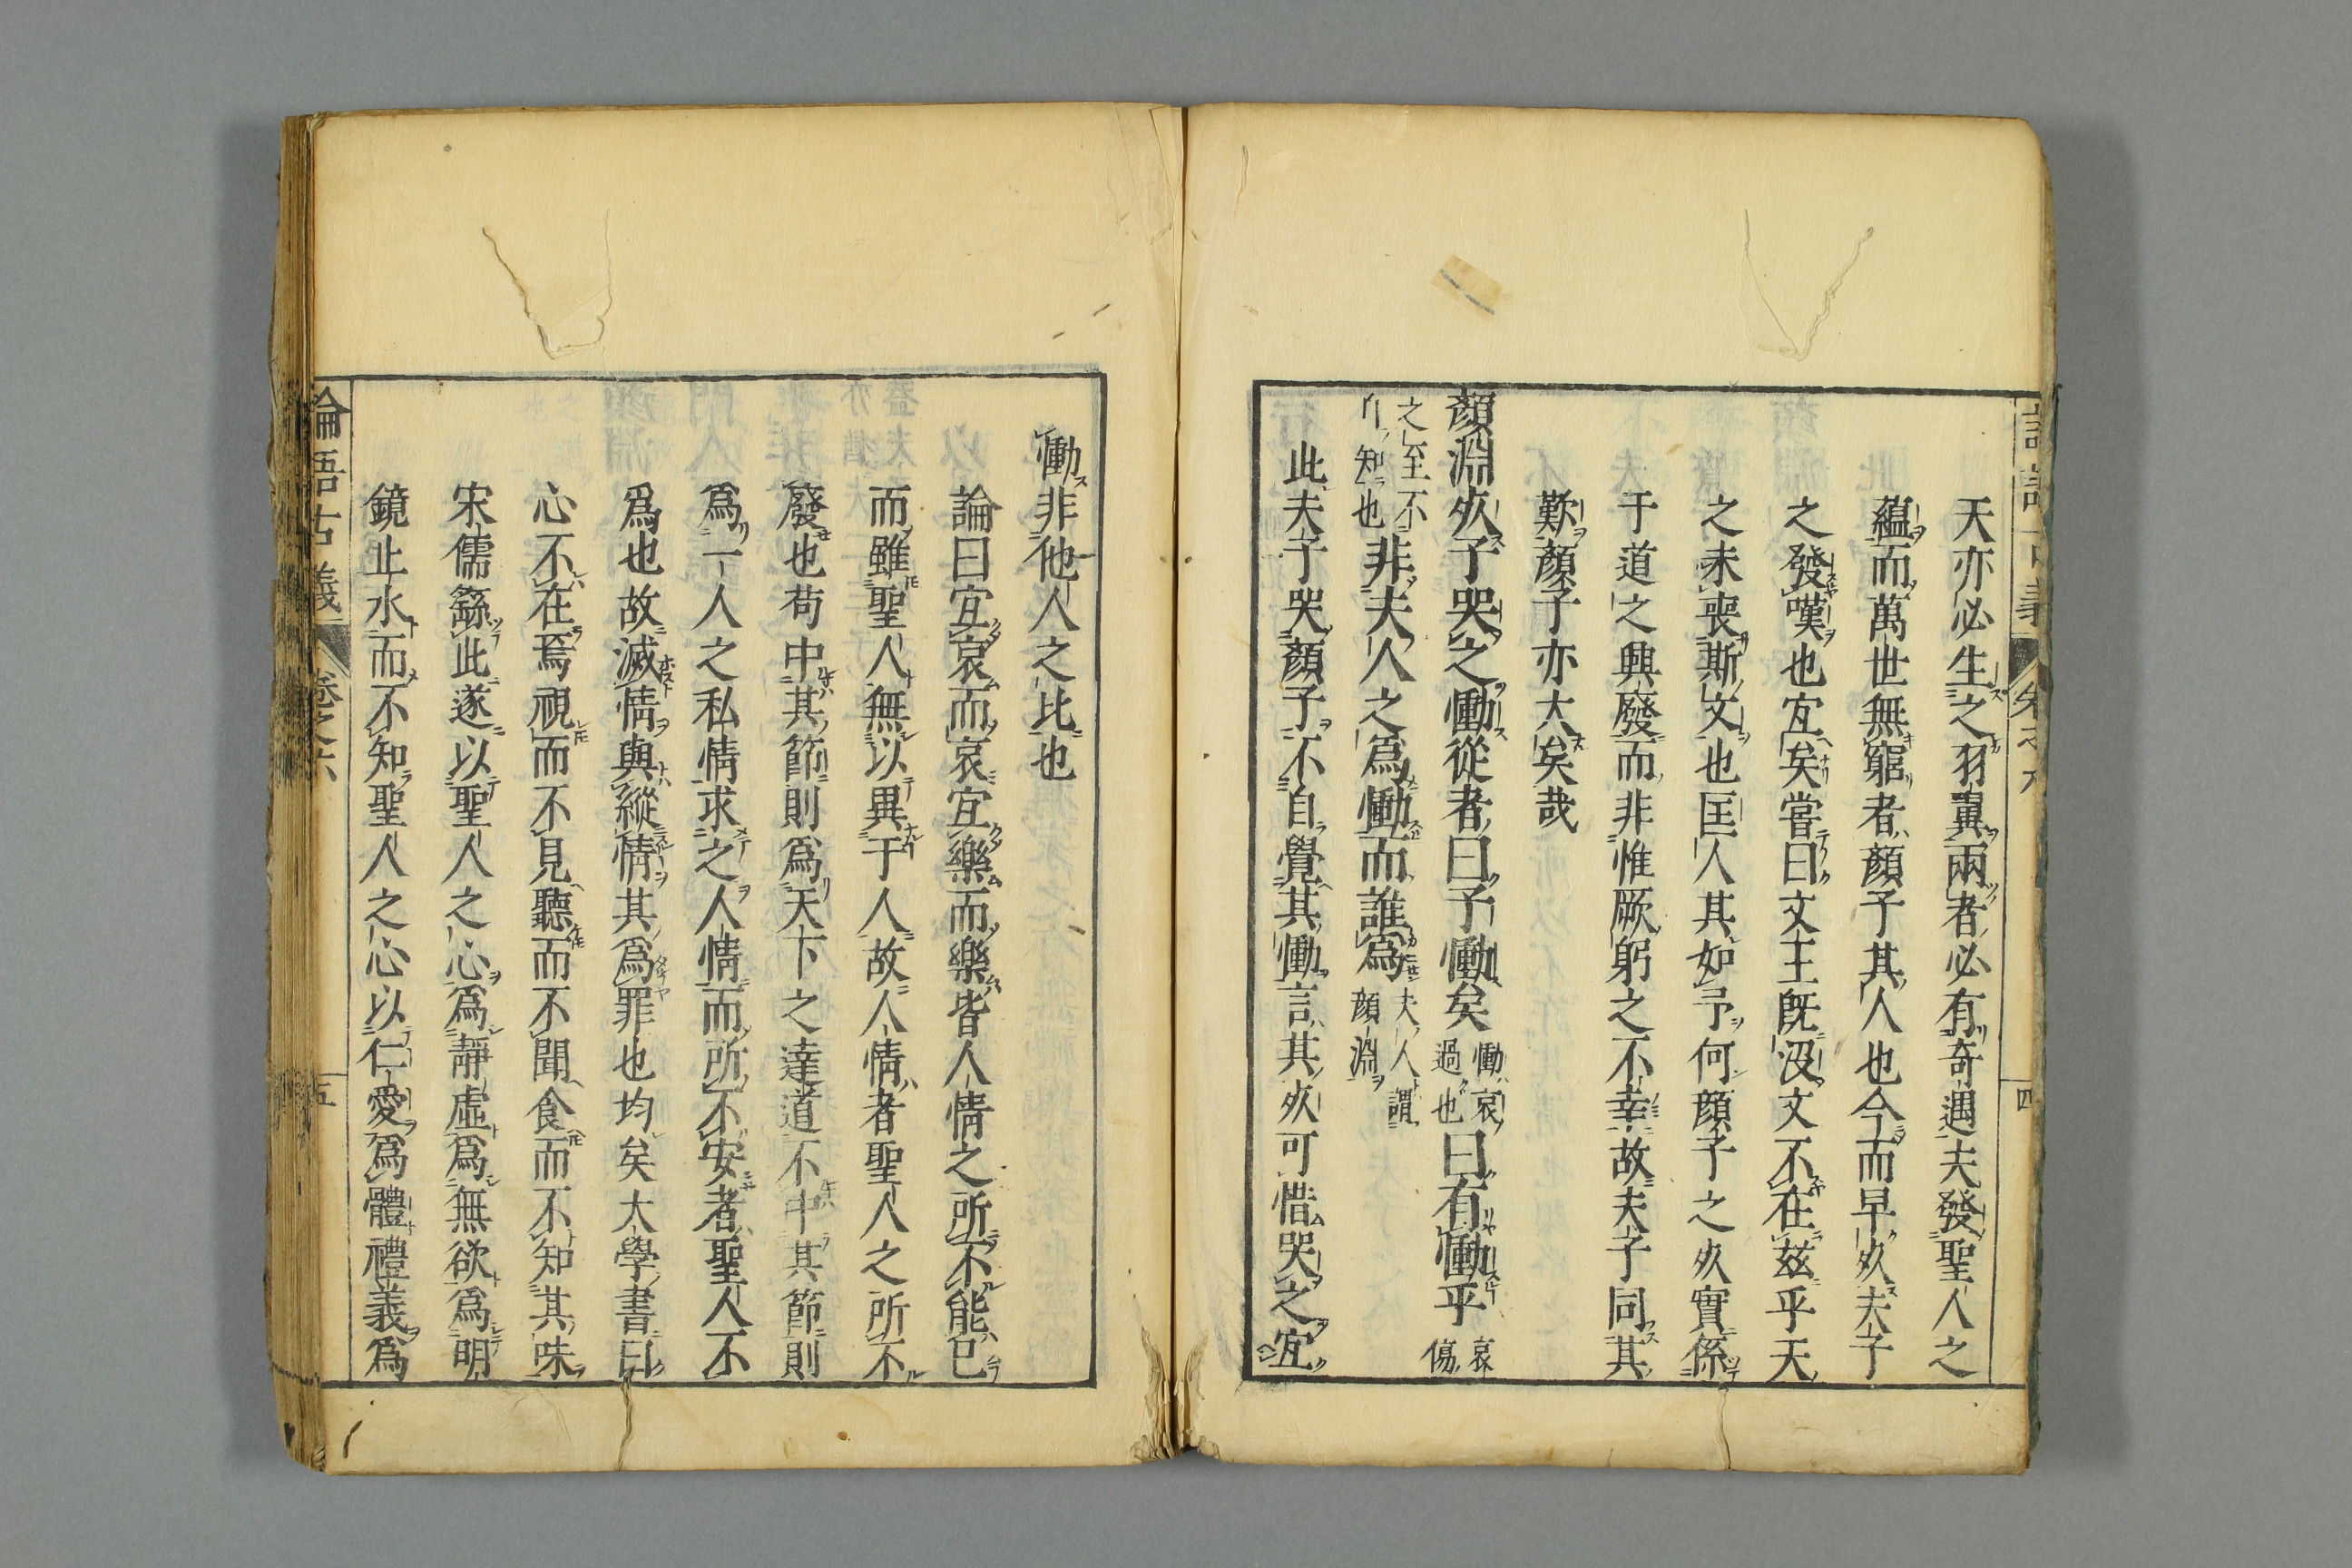 天亦必生之羽翼兩者必有奇遇夫發聖人之
蘊而萬世無窮者顏子其人也今而早死夫子
之發嘆也宜矣嘗曰文王旣没文不在茲乎天
之未喪斯文也匡人其如予何顏子之死實係
于道之興廢而非惟厥躬之不幸故夫子同其
歎顏子亦大矣哉
顏淵死子哭之慟從者曰子慟矣
慟哀
過也
曰有慟乎
哀傷
之至不
自知也
非夫人之爲慟而誰爲
夫人謂
顏淵
此夫子哭顏子不自覺其慟言其死可惜哭之宜
慟非他人之比也
論曰宜哀而哀宜樂而樂皆人情之所不能已
而雖聖人無以異于人故人情者聖人之所不
廢也苟中其節則爲天下之達道不中其節則
爲一人之私情求之人情而所不安者聖人不
爲也故滅情與縱情其爲罪也均矣大學書曰
心不在焉視而不見聽而不聞食而不知其味
宋儒繇此遂以聖人之心爲靜虛爲無欲爲明
鏡止水而不知聖人之心以仁愛爲體禮義爲
論語古義
卷之六
五
四